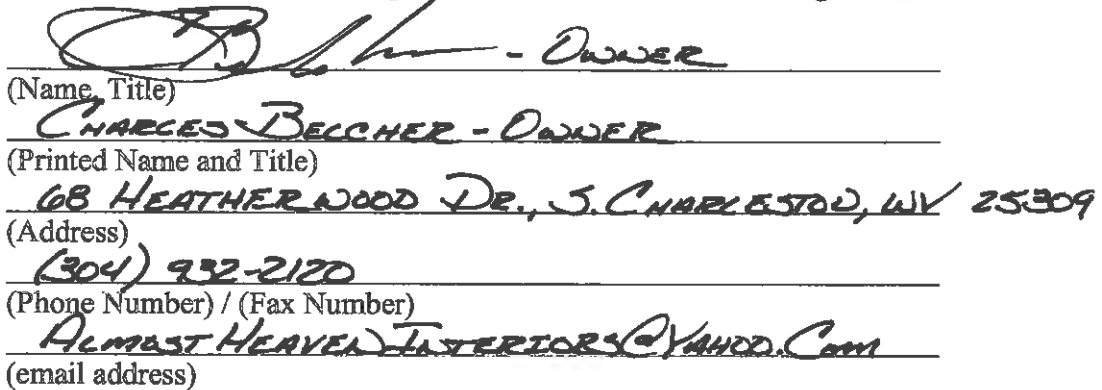 - OWNER
(Name, Title)
CHARLES BELCHER - OWNER
(Printed Name and Title)
68 HEATHERWOOD DR., S. CHARLESTON, WV 25309
(Address)
(304) 932-2120
(Phone Number) / (Fax Number)
ALMOST HEAVEN INTERIORS@YAHOO.COM
(email address)